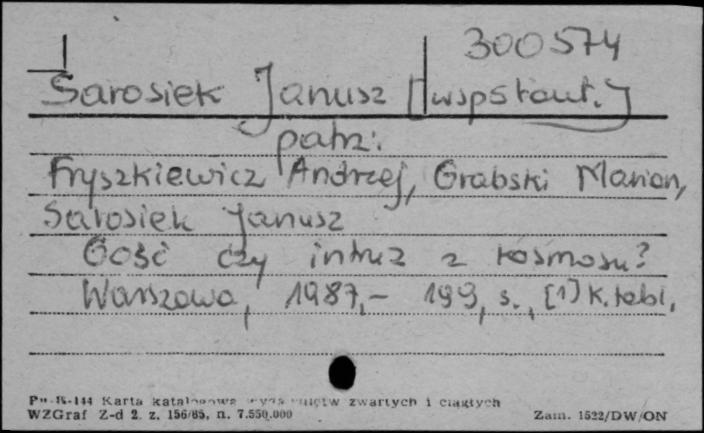 300574
Sarosiek Janusz [wspólaut.]
patrz:
Fryszkiewicz Andrzej, Grabski Marian,
Sarosiek Janusz
Gość czy intruz z kosmosu?
Warszawa, 1987,- 199, s., [1] k. tabl.
Pu-B-144 Karta katalogowa zwartych i ciągłych
WZGraf Z-d 2. z. 156/85, n. 7.550.000
Zam. 1522/DW/ON